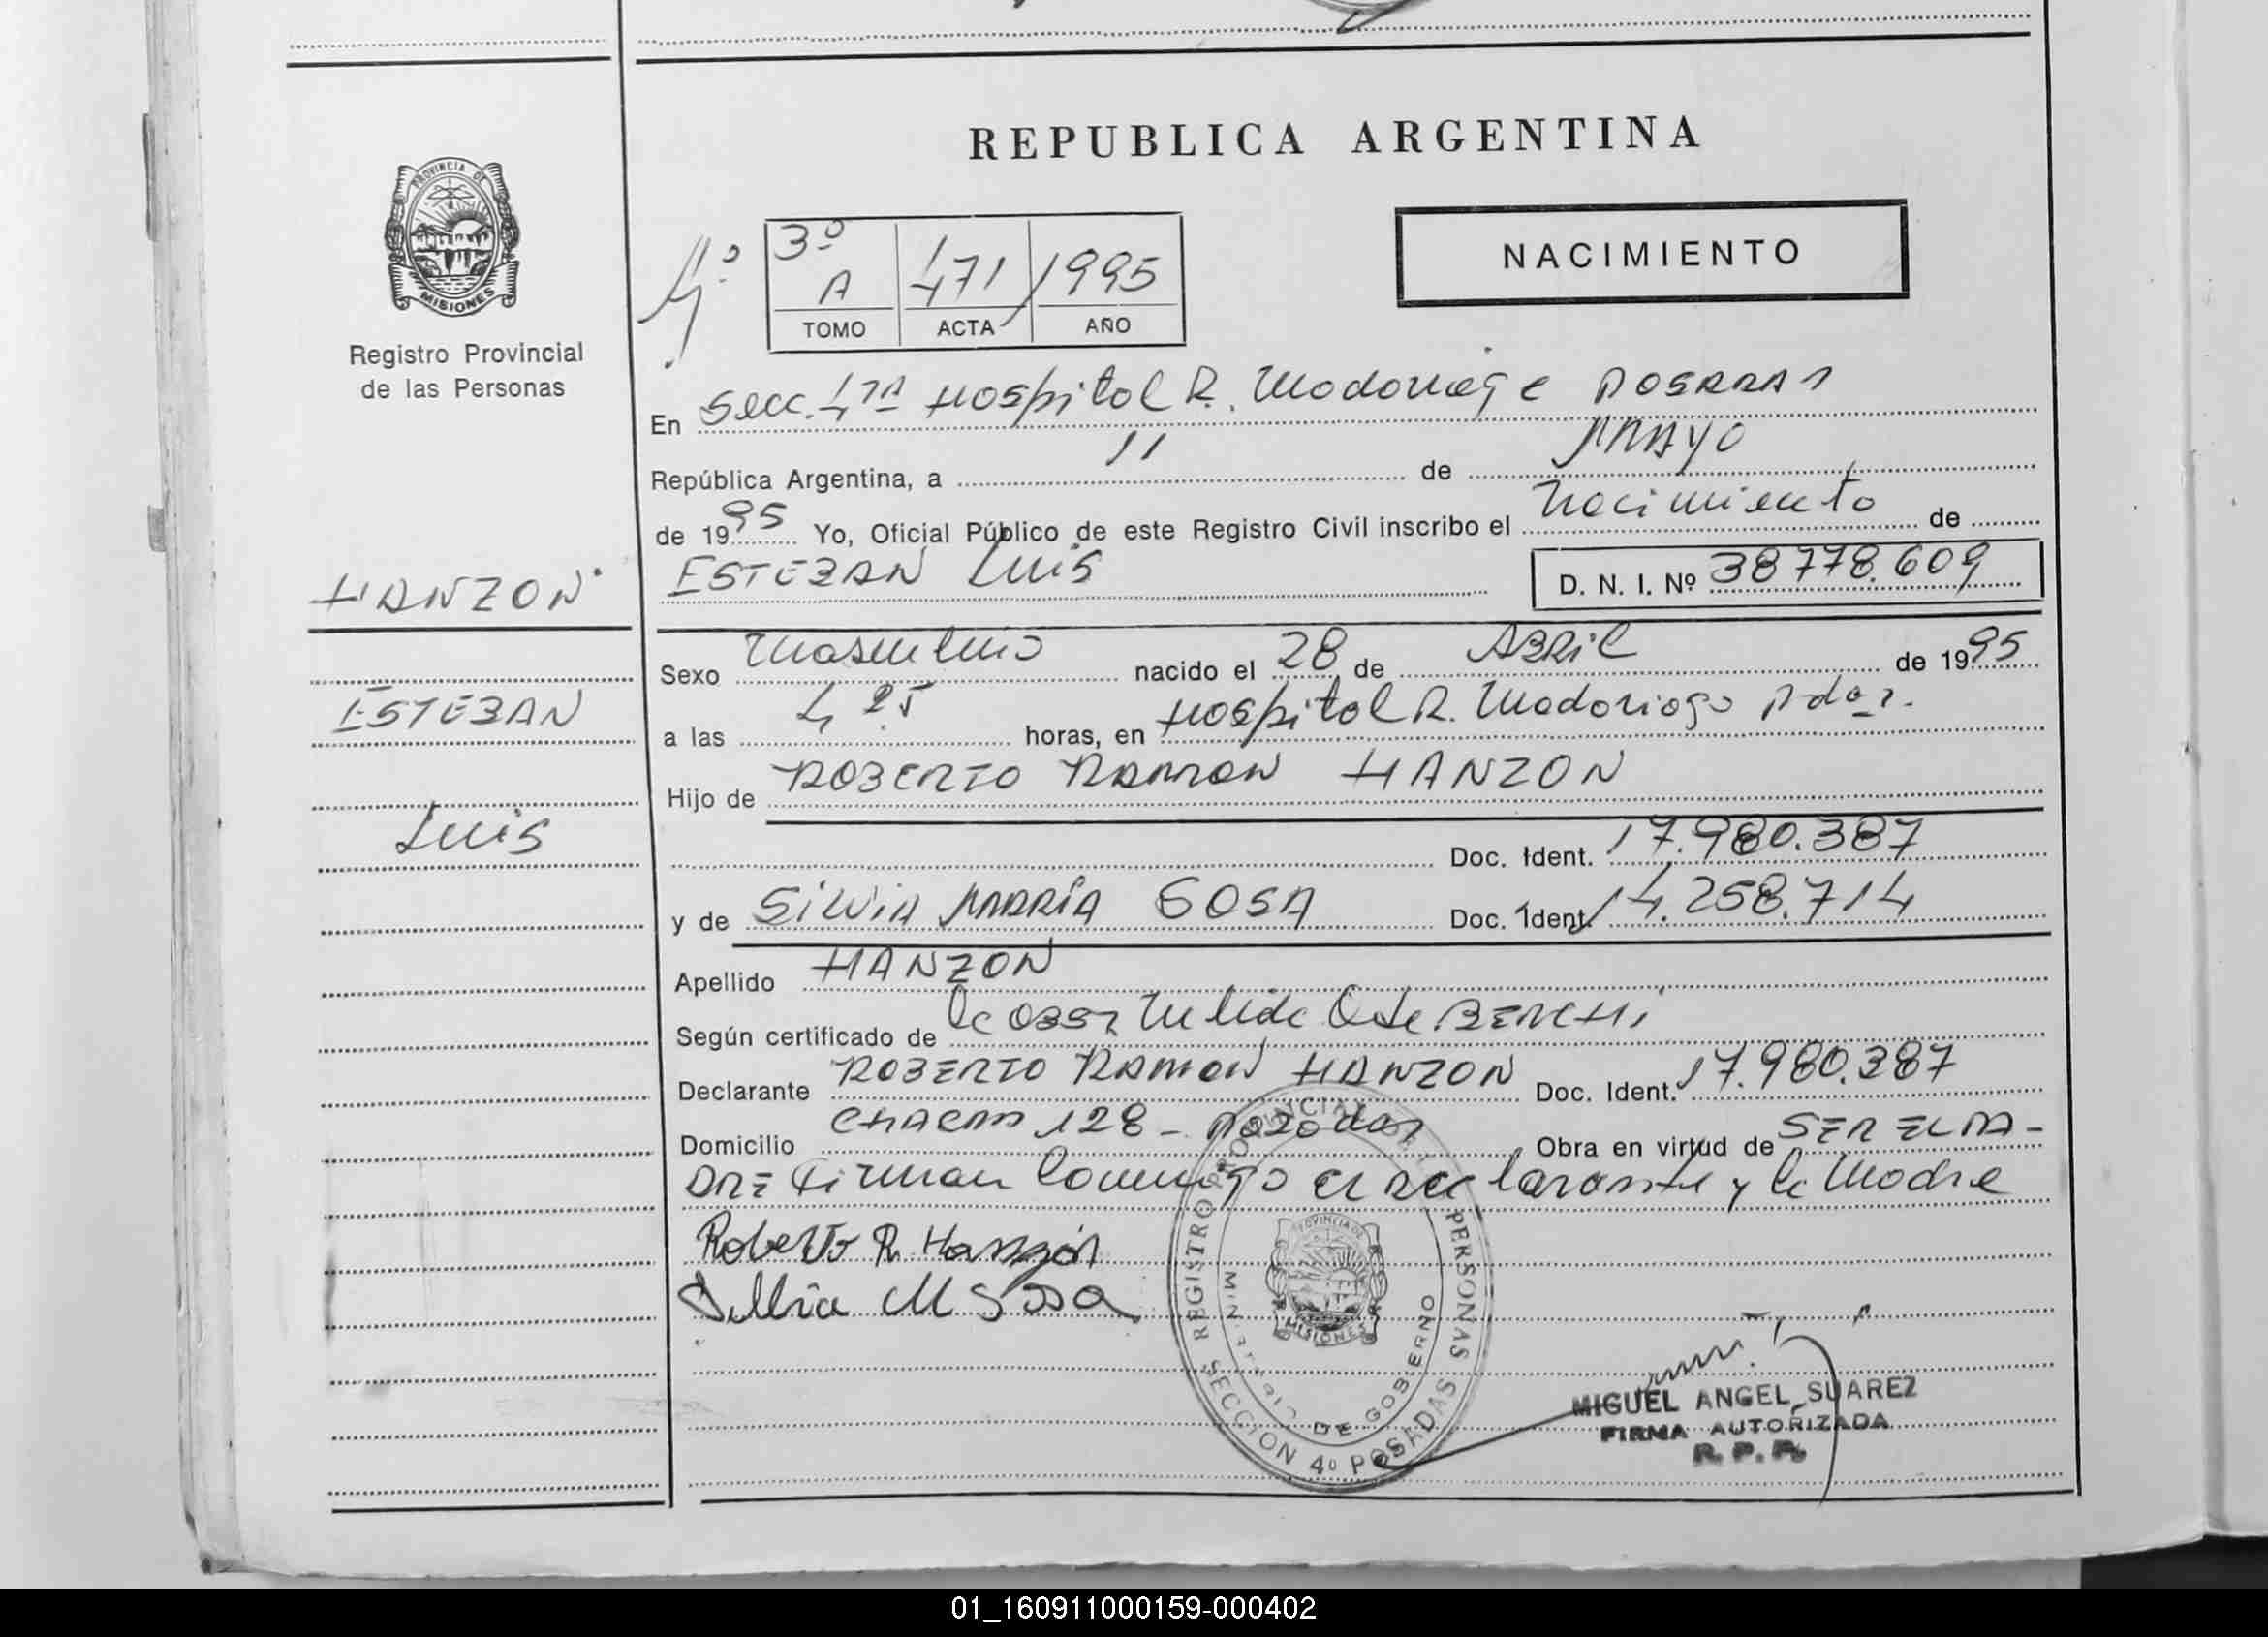 REPUBLICA ARGENTINA
PROVINCIA DE
MISIONES
Registro Provincial
de las Personas
4º
3º
A 471 1995
TOMO ACTA AÑO
NACIMIENTO
En Secc. 4ta Hospital R. Madariaga POSADAS
República Argentina, a 11 de MAYO
de 1995 Yo, Oficial Público de este Registro Civil inscribo el nacimiento de
HANZON
ESTEBAN LUIS D. N. I. Nº 38778.609
Sexo Masculino nacido el 28 de ABRIL de 1995
ESTEBAN
a las 4 25 horas, en Hospital R. Madariaga Pdas.
Hijo de ROBERTO RAMON HANZON
LUIS
Doc. Ident. 17.980.387
y de SILVIA MARÍA SOSA Doc. Ident. 14.258.714
Apellido HANZON
Según certificado de la OBST
Declarante ROBERTO RAMON HANZON Doc. Ident. 17.980.387
Domicilio CHACRA 128 - Posadas Obra en virtud de SER EL PA-
DRE Firman conmigo el declarante y la Madre
Roberto R Hanzón
Silvia M Sosa
REGISTRO PROVINCIAL DE LAS PERSONAS
MINISTERIO DE GOBIERNO
PROVINCIA DE
MISIONES
SECCION 4º POSADAS
MIGUEL ANGEL SUAREZ
FIRMA AUTORIZADA
R. P. P.
01_160911000159-000402